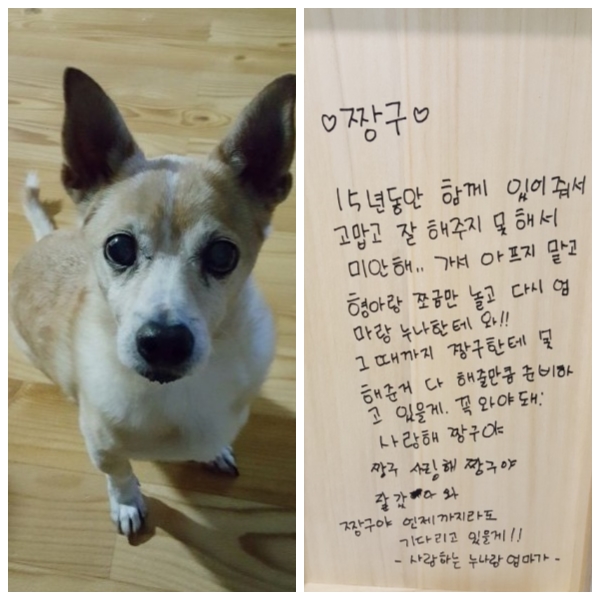 ♡짱구♡
15년동안 함께 있어줘서
고맙고 잘 해주지 못 해서
미안해.. 가서 아프지 말고
형아랑 쪼금만 놀고 다시 엄
마랑 누나한테 와!!
그 때까지 짱구한테 못
해준거 다 해줄만큼 준비하
고 있을게. 꼭 와야돼!
사랑해 짱구야
짱구 사랑해 짱구야
잘 갔다 와
짱구야 언제까지라도
기다리고 있을게!!
- 사랑하는 누나랑 엄마가 -